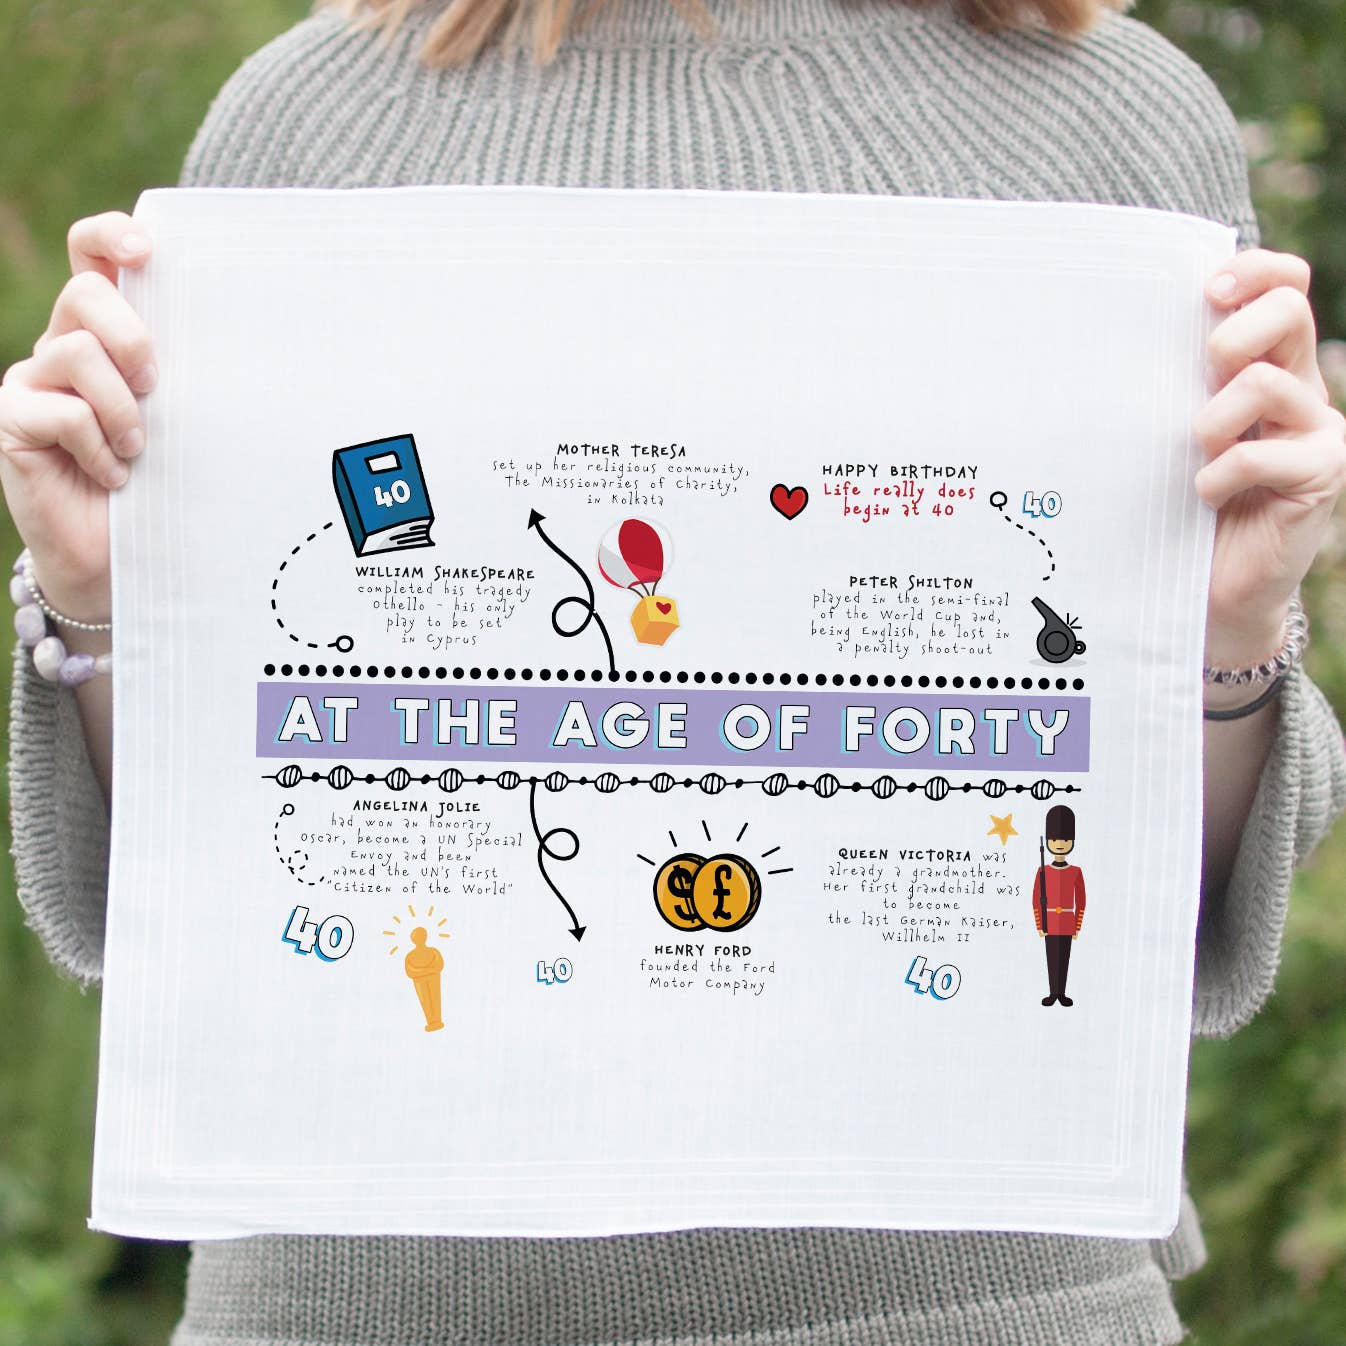 40
WILLIAM SHAKESPEARE
completed his tragedy
Othello - his only
play to be set
in Cyprus
MOTHER TERESA
set up her religious community,
The Missionaries of Charity,
in Kolkata
HAPPY BIRTHDAY
Life really does
begin at 40
40
PETER SHILTON
played in the semi-final
of the World Cup and,
being English, he lost in
a penalty shoot-out
AT THE AGE OF FORTY
ANGELINA JOLIE
had won an honorary
Oscar, become a UN Special
Envoy and been
named the UN's first
"Citizen of the World"
40
40
$ £
HENRY FORD
founded the Ford
Motor Company
QUEEN VICTORIA was
already a grandmother.
Her first grandchild was
to become
the last German Kaiser,
Willhelm II
40